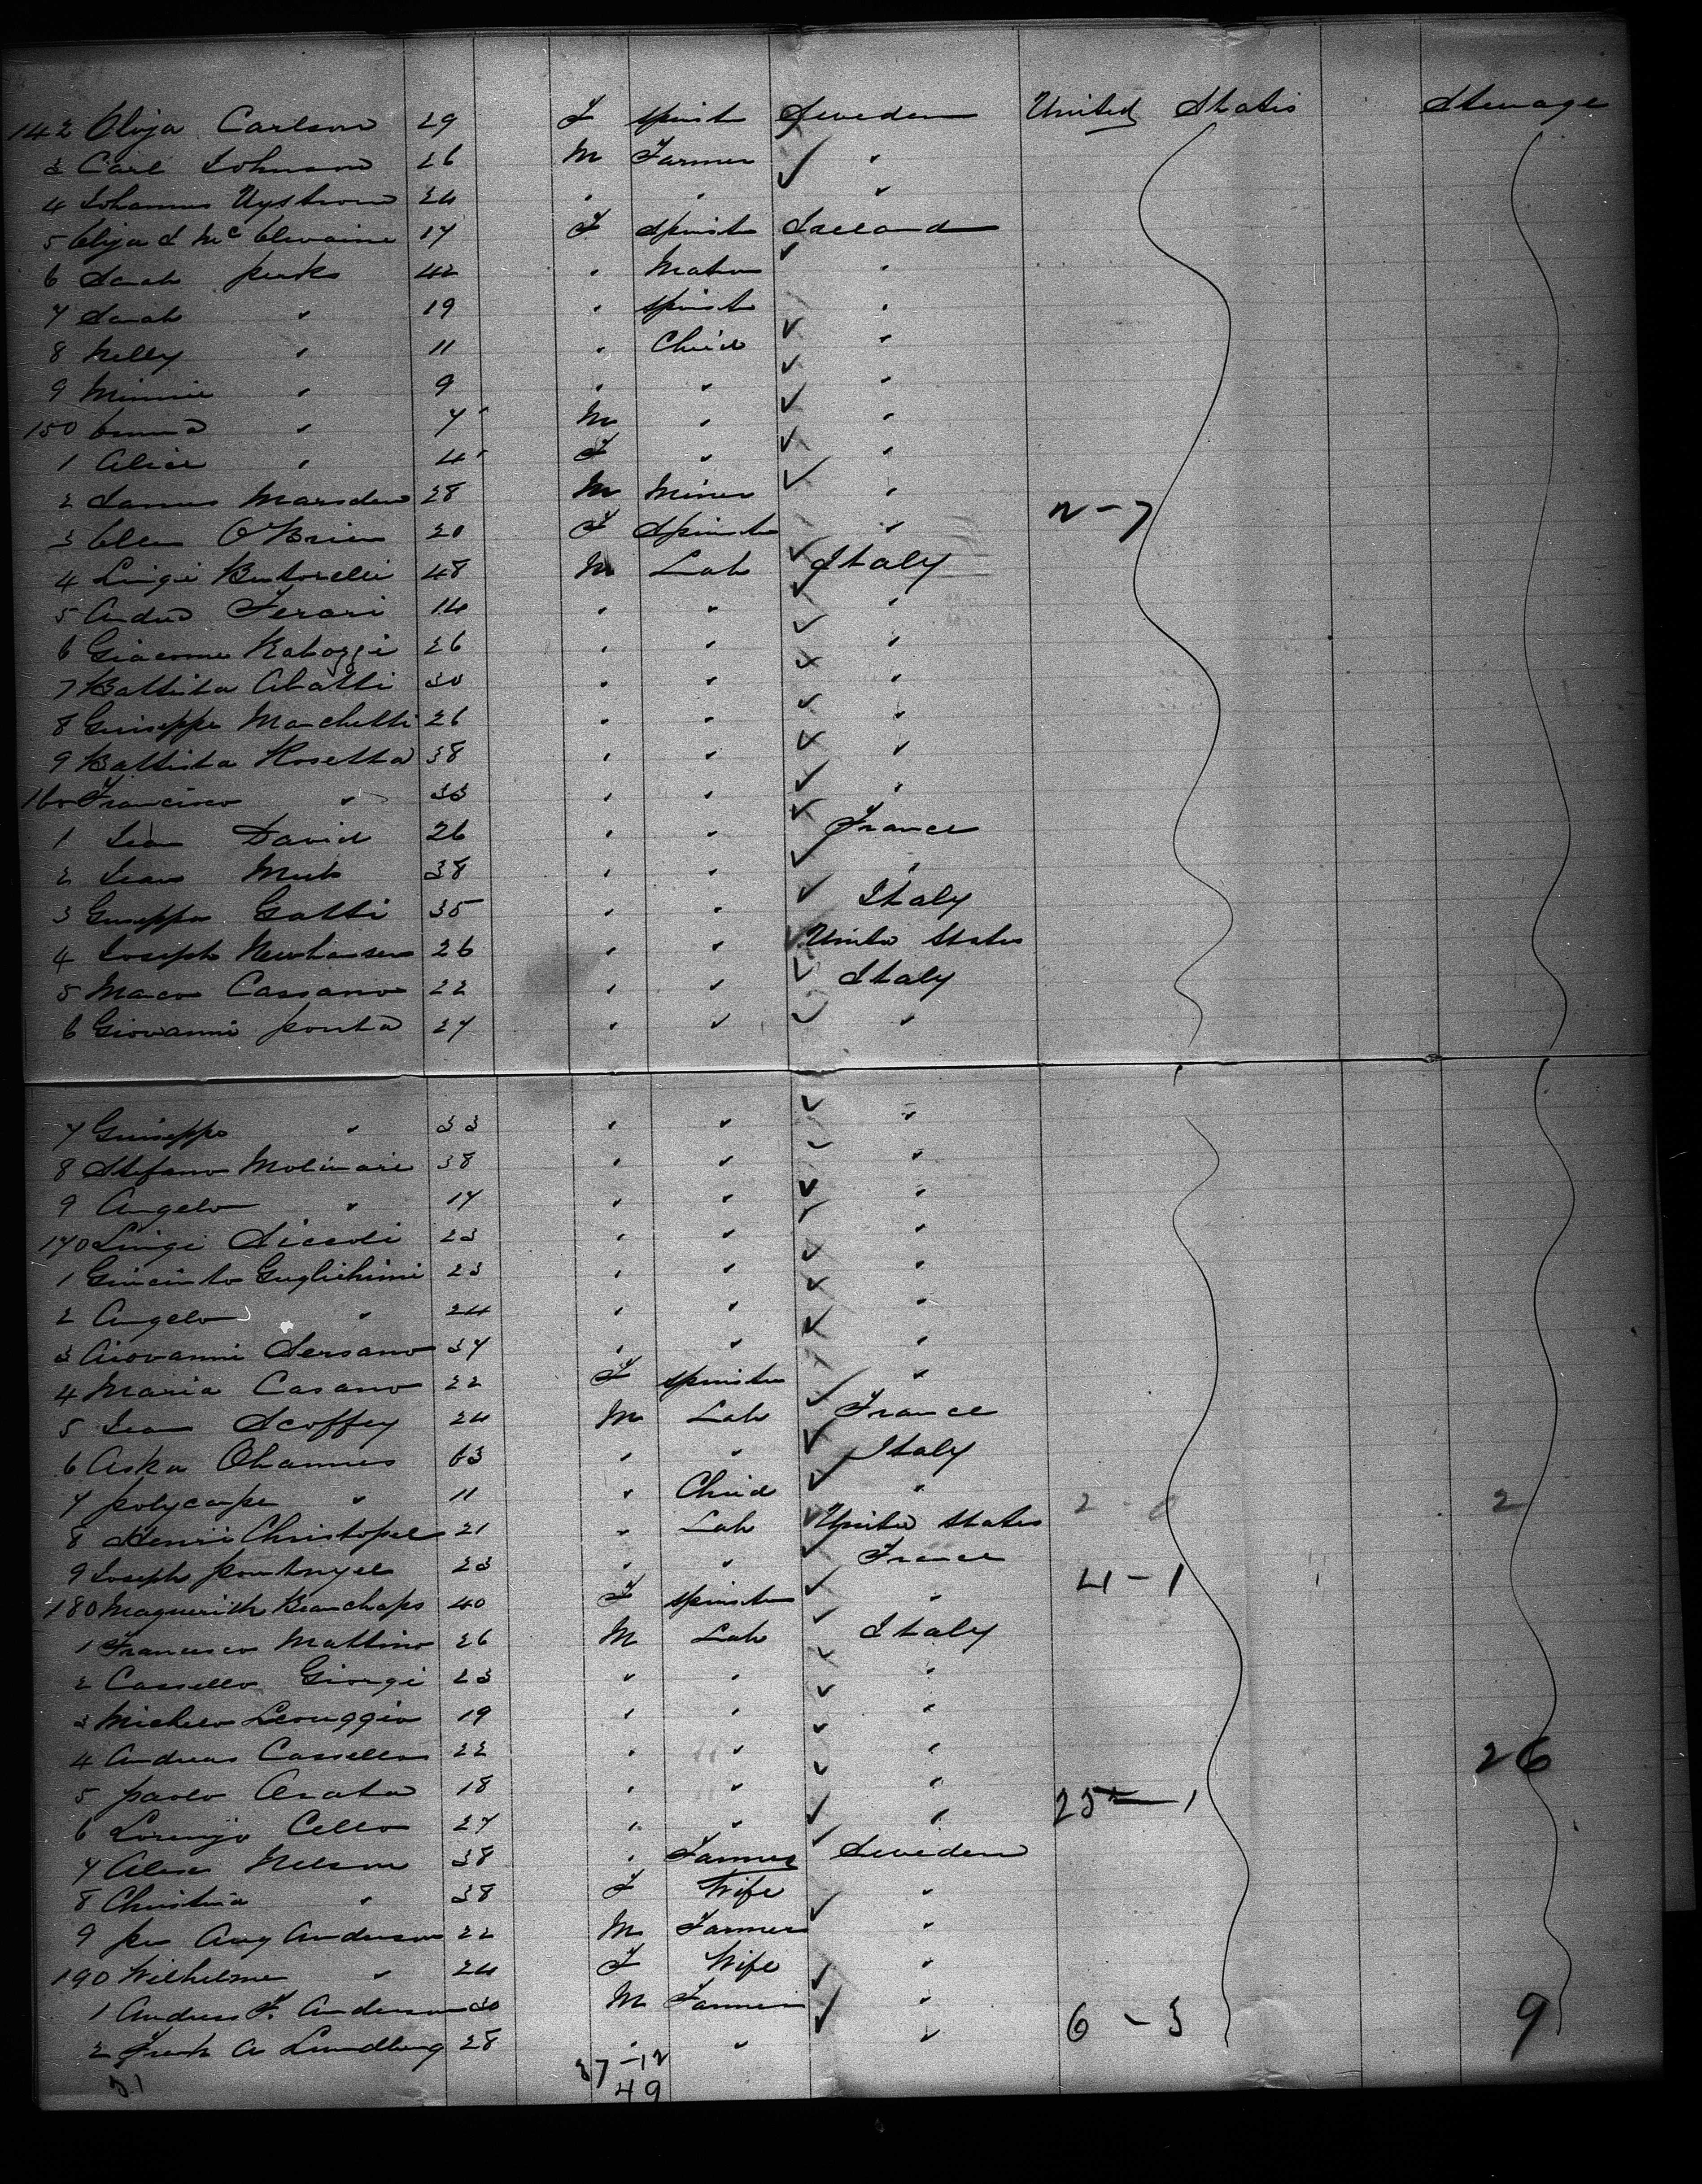 142 Eliza Carlson 29 F spinst Sweden United States Steerage
3 Carl Johnson 26 M Farmer "
4 Johannes Nystrom 24 " " "
5 Eliza J McElwaine 17 F Spinst Ireland
6 Sarah perks 42 " Matron "
7 Sarah " 19 " spinst "
8 Nelly " 11 " Child "
9 Minnie " 9 " " "
150 " 7 M " "
1 Alice " 4 F " "
2 James Marsden 28 M Miner "
3 Ellen O'Brien 20 F Spinst " 2-7
4 Luigi Butorelli 48 M Lab Italy
5 Andrea Ferari 14 " " "
6 Giacomo Rabozzi 26 " " "
7 Battista Abatti 30 " " "
8 Guiseppe Marchetti 26 " " "
9 Battista Rosetta 38 " " "
160 Francisco " 33 " " "
1 Jean David 26 " " France
2 Jean 38 " " "
3 Guseppe Gatti 35 " " Italy
4 Joseph Newhausen 26 " " United States
5 Marco Cassano 22 " " Italy
6 Giovanni ponta 27 " " "
7 Guiseppe " 33 " " "
8 Stefano Molinari 38 " " "
9 Angelo " 17 " " "
170 Luigi Siccoli 23 " " "
1 Giacinto Guglielmini 23 " " "
2 Angelo " 24 " " "
3 Giovanni Sersano 37 " " "
4 Maria Casano 22 F spinster "
5 Jean Scoffey 24 M Lab France
6 Aska Ohannes 63 " " Italy
7 polycarpe " 11 " Child " 2-0 2
8 Henri Christopel 21 " Lab United States
9 Joseph 23 " " France 4-1
180 Maguerith Beauchaps 40 F spinster "
1 Francesco Mattino 26 M Lab Italy
2 Cassello Giorgi 23 " " "
3 Michele 19 " " "
4 Andreas Cassello 22 " " " 26
5 paolo Arata 18 " " " 25-1
6 Lorenzo Cello 27 " " "
7 Alex Nelson 38 " Farmer Sweden
8 Christina " 38 F Wife "
9 per Aug Anderson 22 M Farmer "
190 Wilhelme " 24 F Wife "
1 Andrew F. Anderson 30 M Farmer " 6-3 9
2 Frank A Lundberg 28 " " "
51 37-12
49